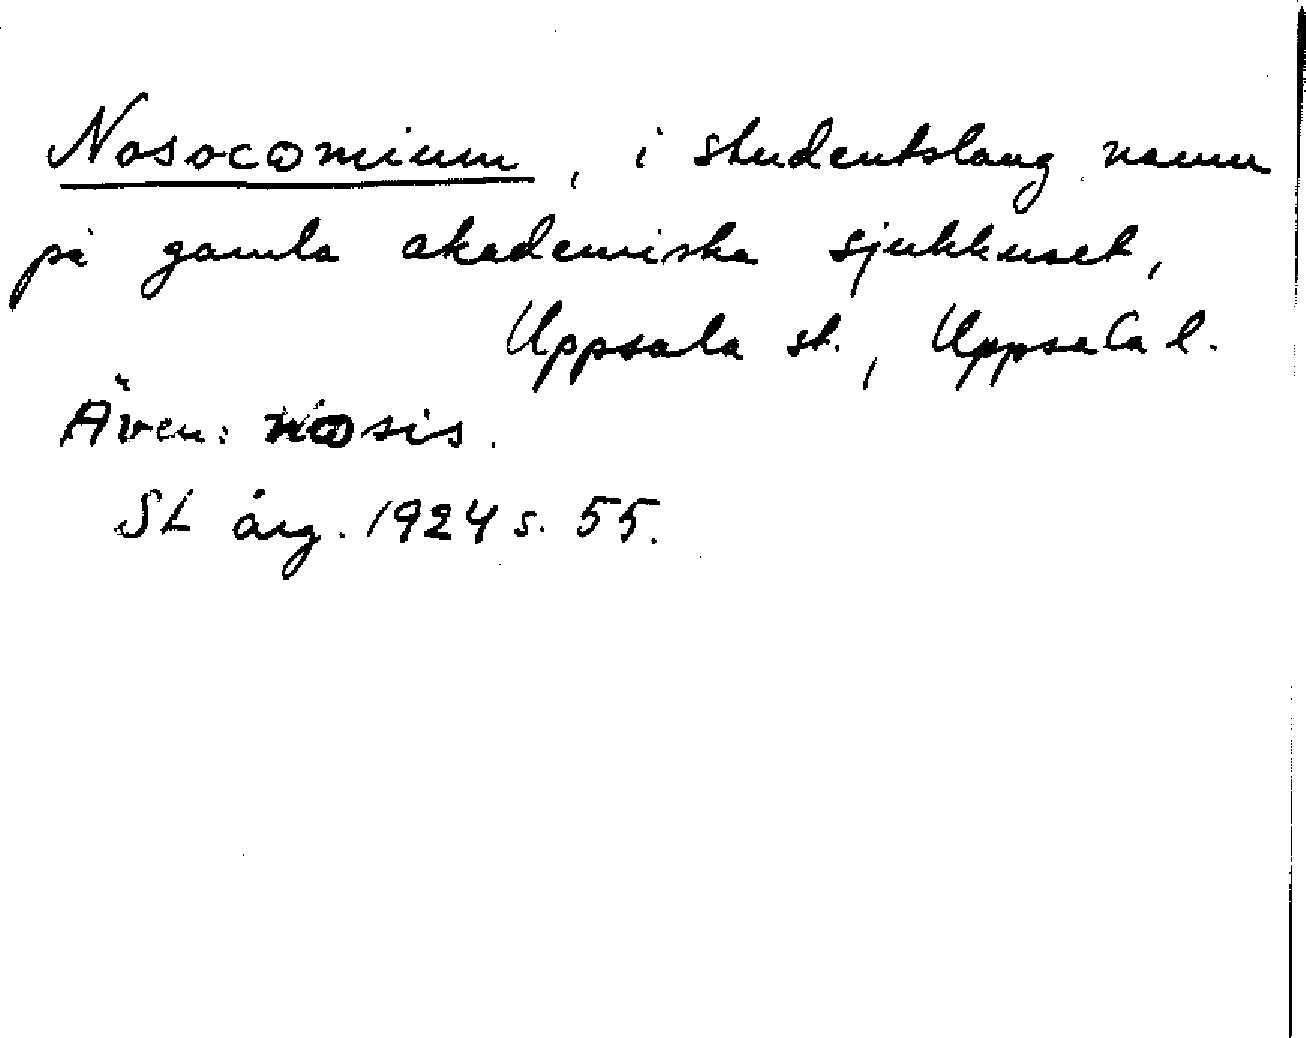 Nosocomium, i studentslang namn
på gamla akademiska sjukhuset,
Uppsala st., Uppsala l.
Även: nosis.
St årg. 1924 s. 55.